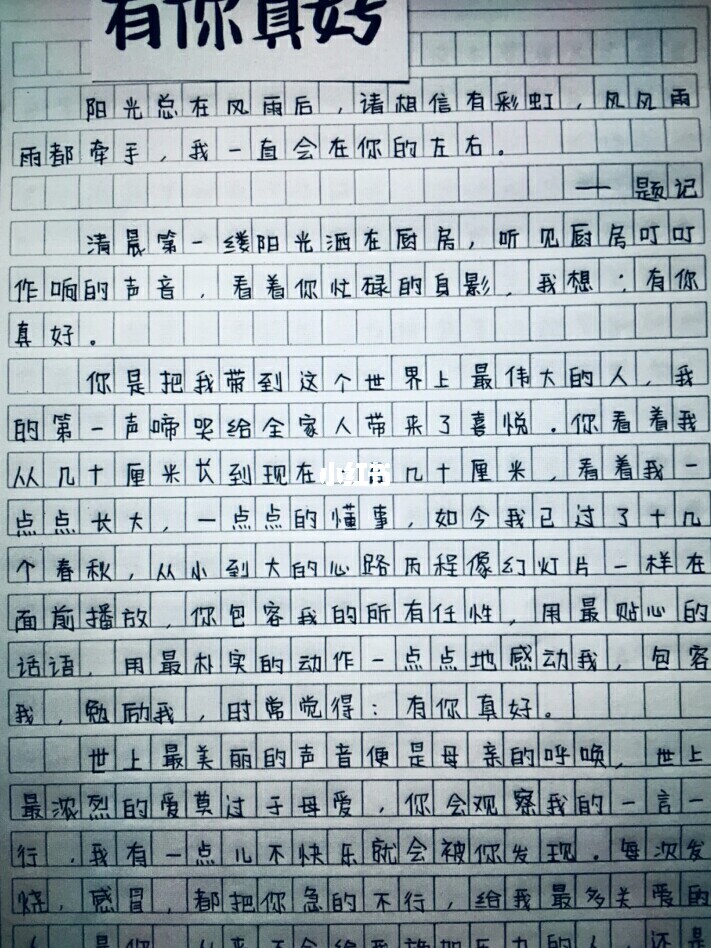 有你真好
阳光总在风雨后，请相信有彩虹，风风雨
雨都牵手，我一直会在你的左右。
——题记
清晨第一缕阳光洒在厨房，听见厨房叮叮
作响的声音，看着你忙碌的身影，我想：有你
真好。
你是把我带到这个世界上最伟大的人，我
的第一声啼哭给全家人带来了喜悦．你看着我
从几十厘米长到现在几十厘米，看着我一
小红书
点点长大，一点点的懂事，如今我已过了十几
个春秋，从小到大的心路历程像幻灯片一样在
面前播放，你包容我的所有任性，用最贴心的
话语，用最朴实的动作一点点地感动我，包容
我，勉励我，时常觉得：有你真好。
世上最美丽的声音便是母亲的呼唤，世上
最浓烈的爱莫过于母爱，你会观察我的一言一
行，我有一点儿不快乐就会被你发现．每次发
烧，感冒，都把你急的不行，给我最多关爱的
人是你，从来不会给我施加压力的人还是